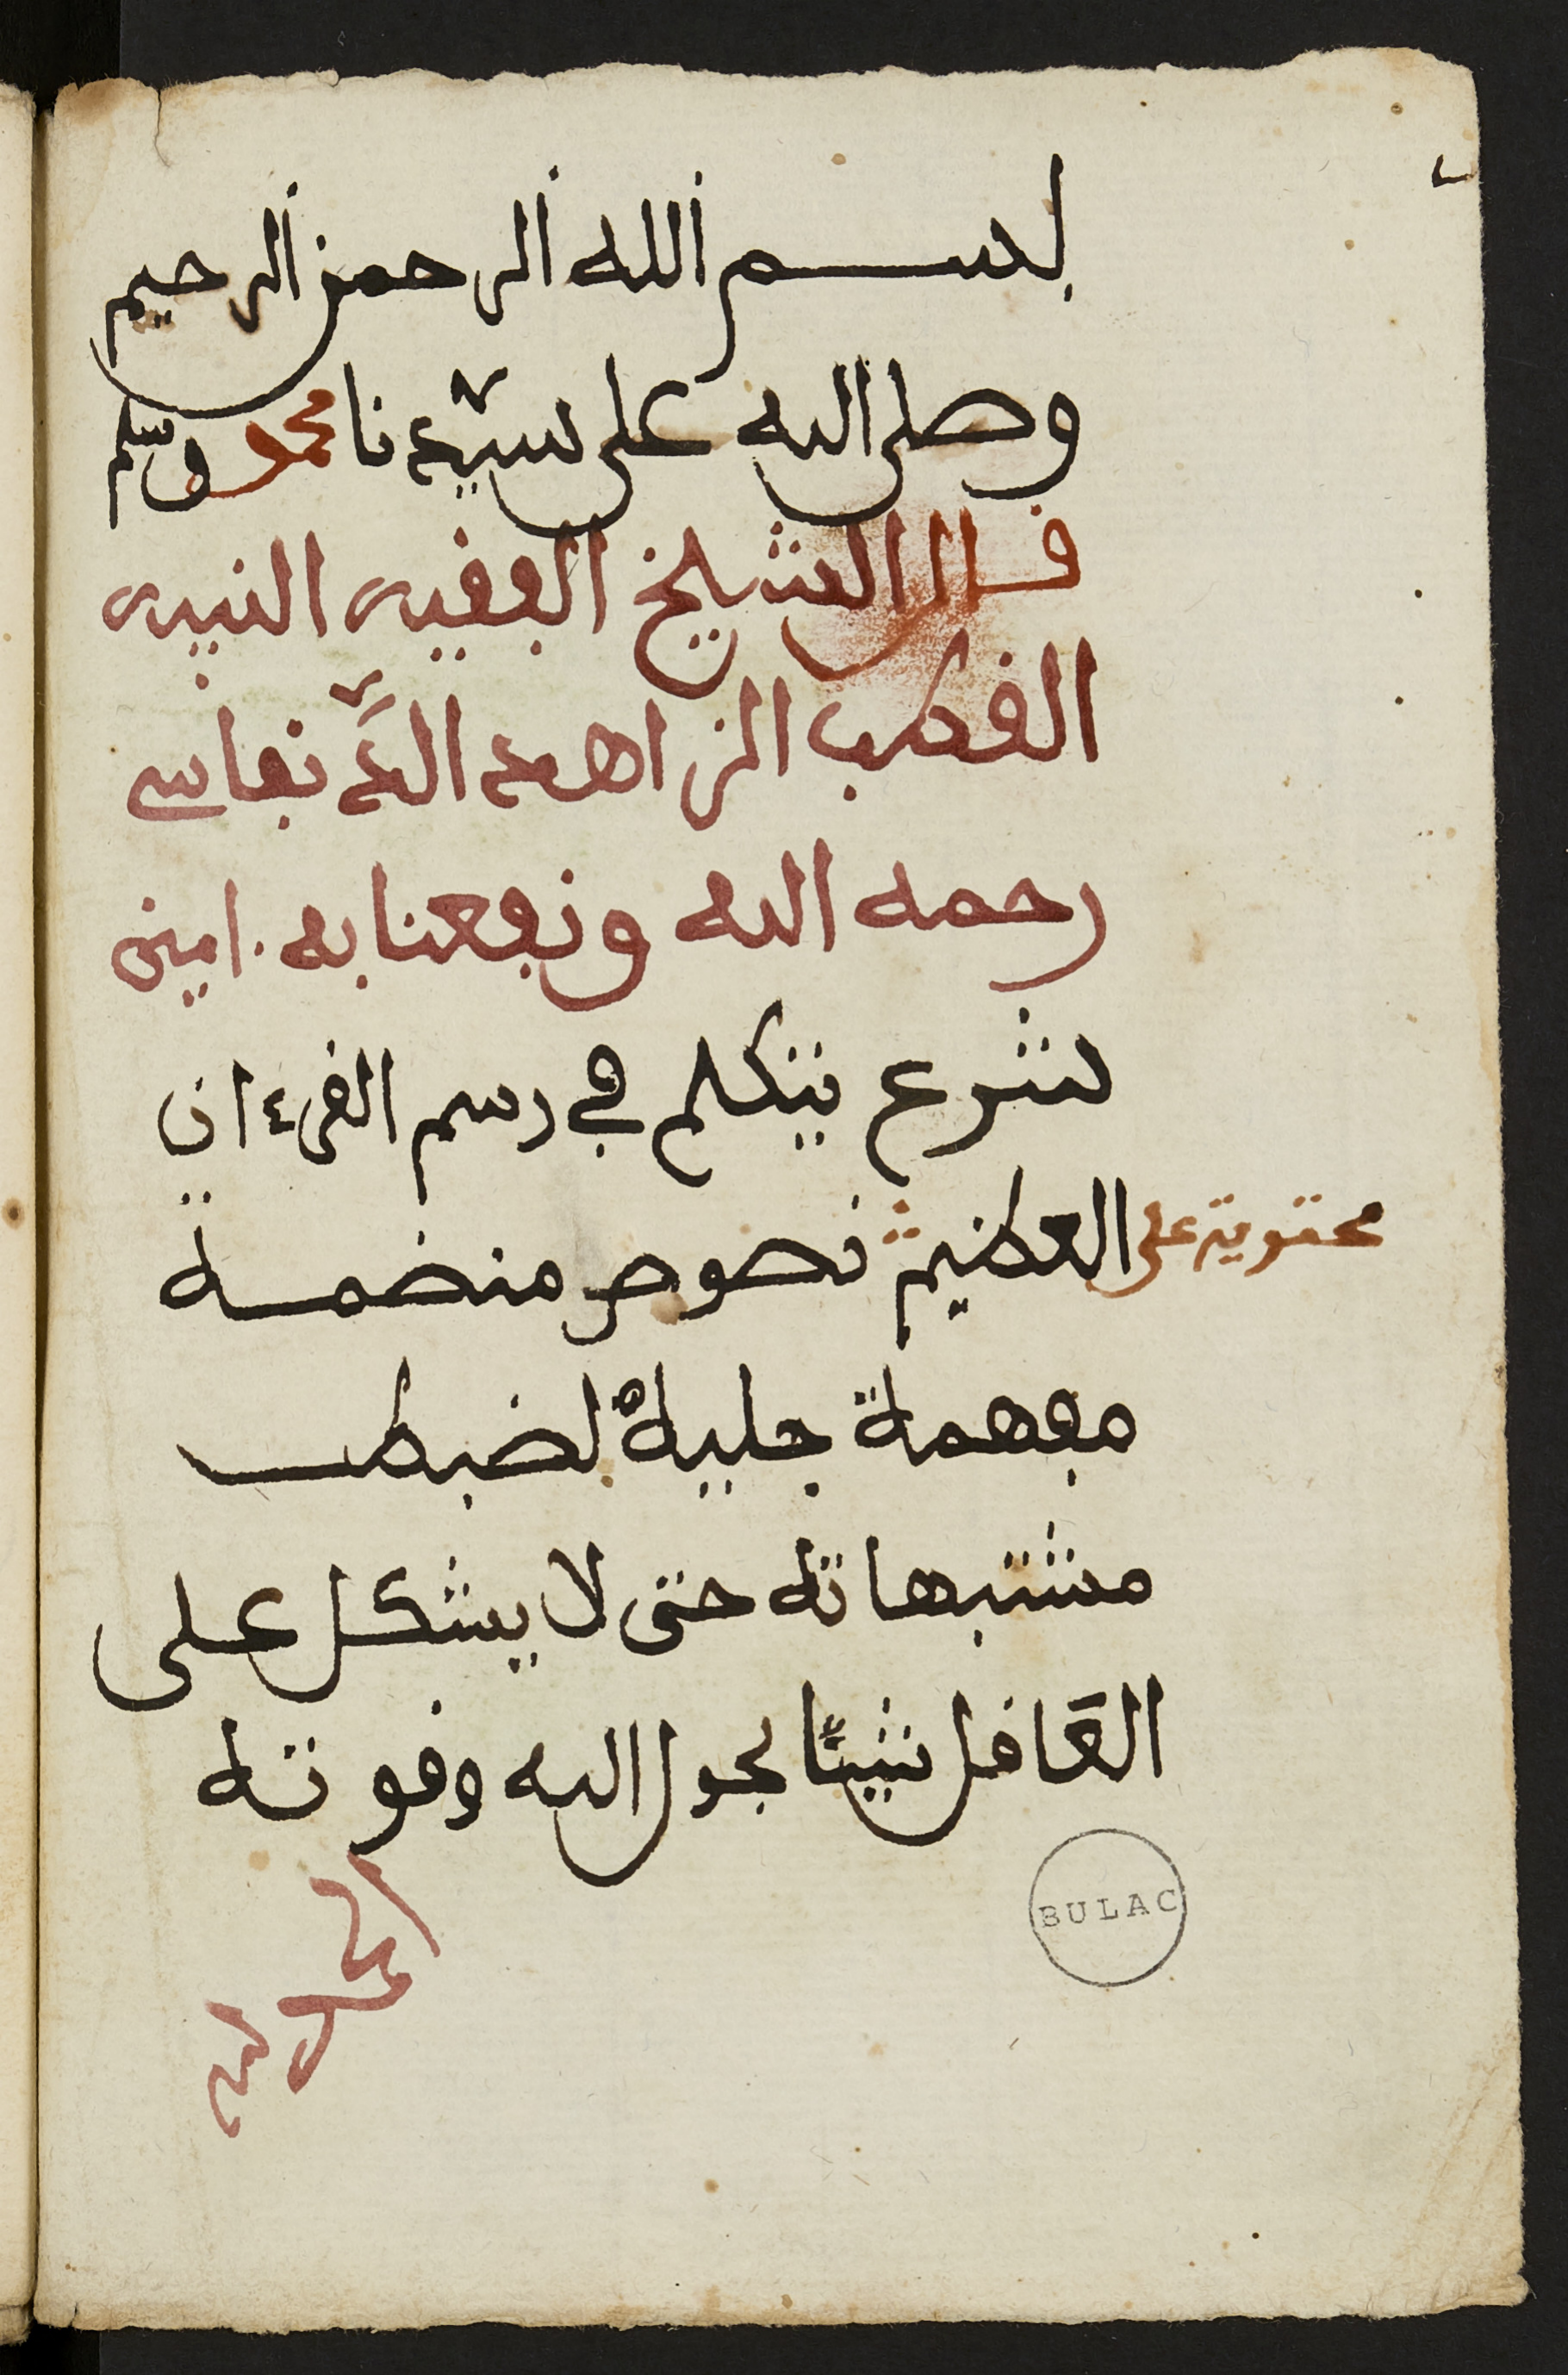 بسم الله الرحمن الرحيم
وصلى الله على سيدنا محمد وسلم
قال الشيخ الفقيه النبيه
القطب الزاهد الدنفاسي
رحمه الله ونفعنا به امين
نشرع نتكلم في رسم القرءان
العظيم نصوص منضمة
محتوية على
مفهمة جليلة لضبط
مشتبهاته حتى لا يشكل على
العاقل شيئا بحول الله وقوته
الحمد لله
BULAC